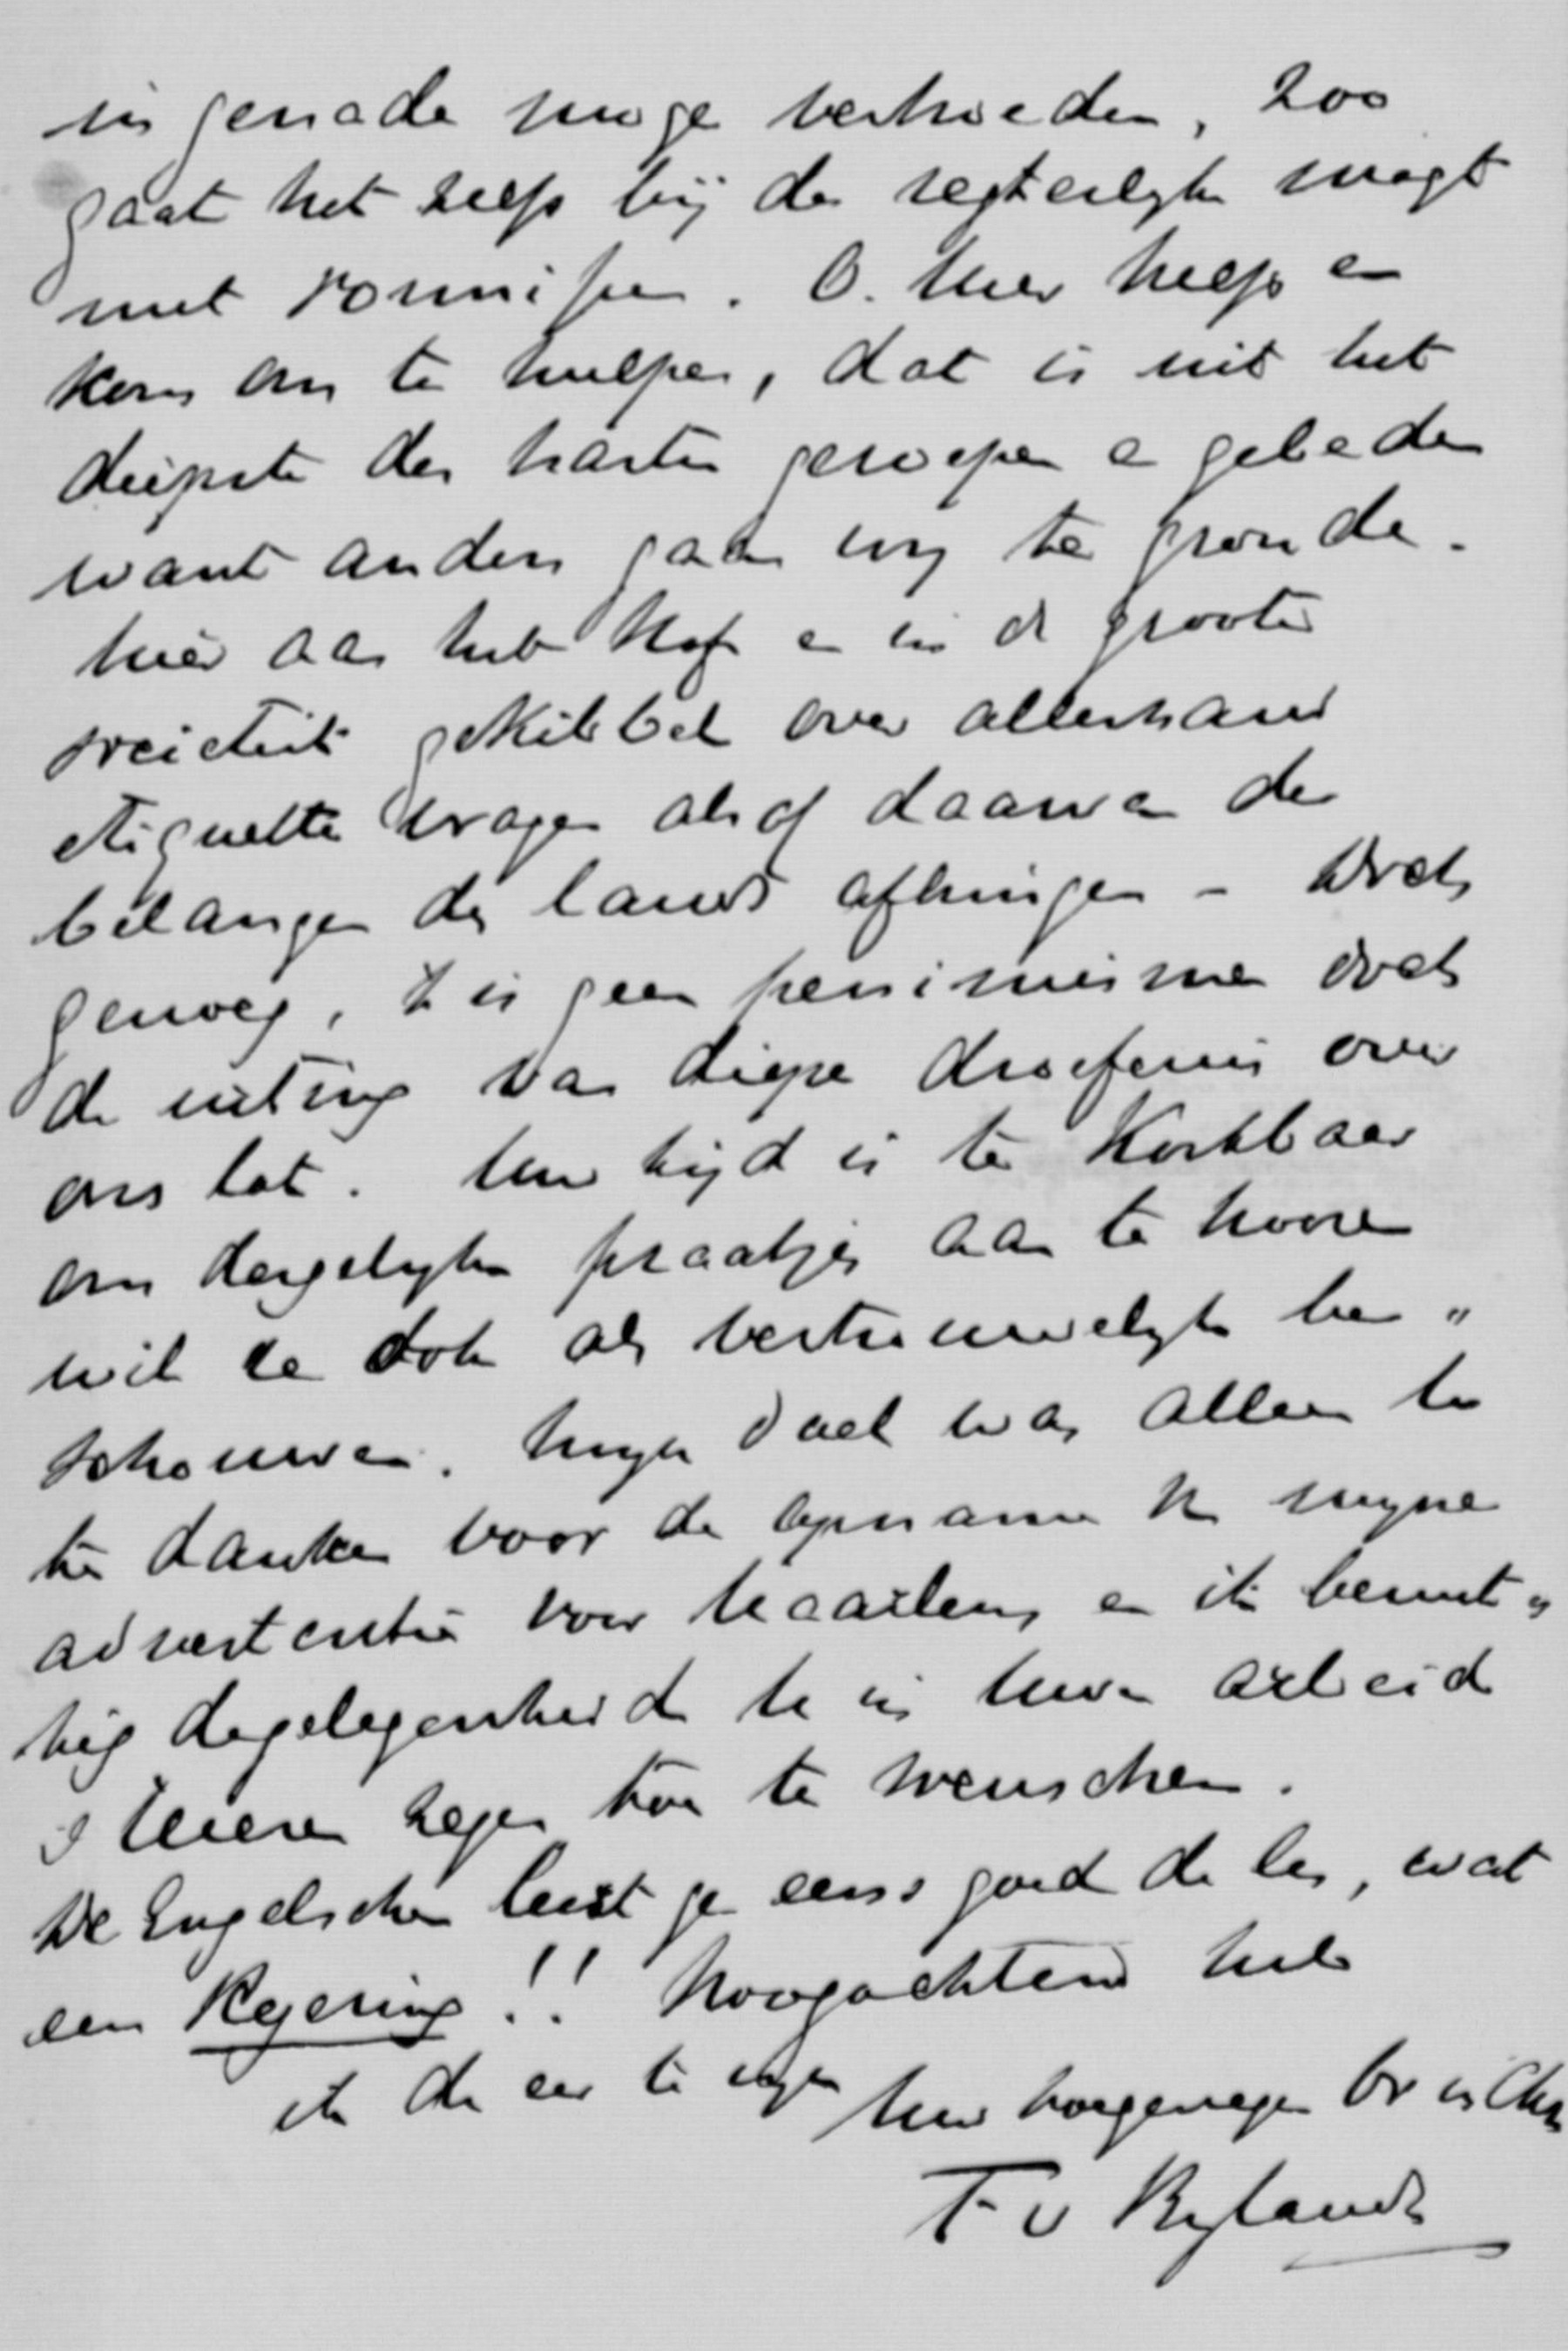 in genade moge verhoeden, zoo
gaat het zelfs bij de regterlyke magt
met vonnissen. O. Heer help en
kom ons te hulpe, dat is uit het
diepste des harten geroepen en gebeden
want anders gaan wy te gronde.
hier aan het Hof en in de groote
societeit gekibbel over allerhand
etiquette vragen alsof daarvan de
belangen des lands afhingen - doch
genoeg, 't is geen pessimisme doch
de uiting van diepe droefenis over
ons lot. Uw tijd is te kostbaar
om dergelyke praatjes aan te hooren
wil ze ook als vertrouwelyk be"
schouwen. Myn doel was alleen U
te danken voor de opname v mijne
advertentie voor Haarlem en ik benut"
tig de gelegenheid U in Uwen arbeid
's Heeren zegen toe te wenschen.
De Engelschen leest ge eens goed de les, wat
een Regering!! Hoogachtend heb
ik de eer te zyn Uw toegenegen Br in Chr
F v Bylandt